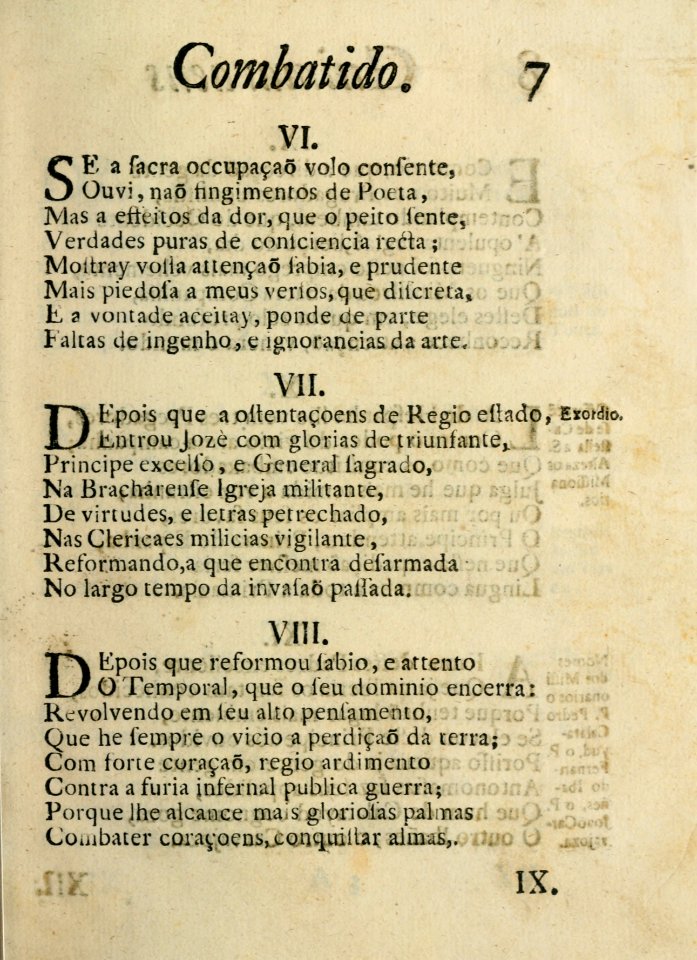 Combatido. 7
VI.
SE a ſacra occupaçaõ voſo conſente,
Ouvi, naõ fingimentos de Poeta,
Mas a effeitos da dor, que o peito ſente,
Verdades puras de conſciencia recta;
Moſtray voſſa attençaõ ſabia, e prudente
Mais piedoſa a meus verſos, que diſcreta,
E a vontade aceitay, ponde de parte
Faltas de ingenho, e ignorancias da arte.
VII.
DEpois que a oſtentaçoens de Regio eſtado, Exordio.
Entrou Jozè com glorias de triunfante,
Principe excelſo, e General ſagrado,
Na Braçharenſe Igreja militante,
De virtudes, e letras petrechado,
Nas Clericaes milicias vigilante,
Reformando, a que encontra deſarmada
No largo tempo da invaſaõ paſſada.
VIII.
DEpois que reformou ſabio, e attento
O Temporal, que o ſeu dominio encerra:
Revolvendo em ſeu alto penſamento,
Que he ſempre o vicio a perdiçaõ da terra;
Com forte coraçaõ, regio ardimento
Contra a furia infernal publica guerra;
Porque lhe alcance mais glorioſas palmas
Combater coraçoens, conquiſtar almas,.
IX.